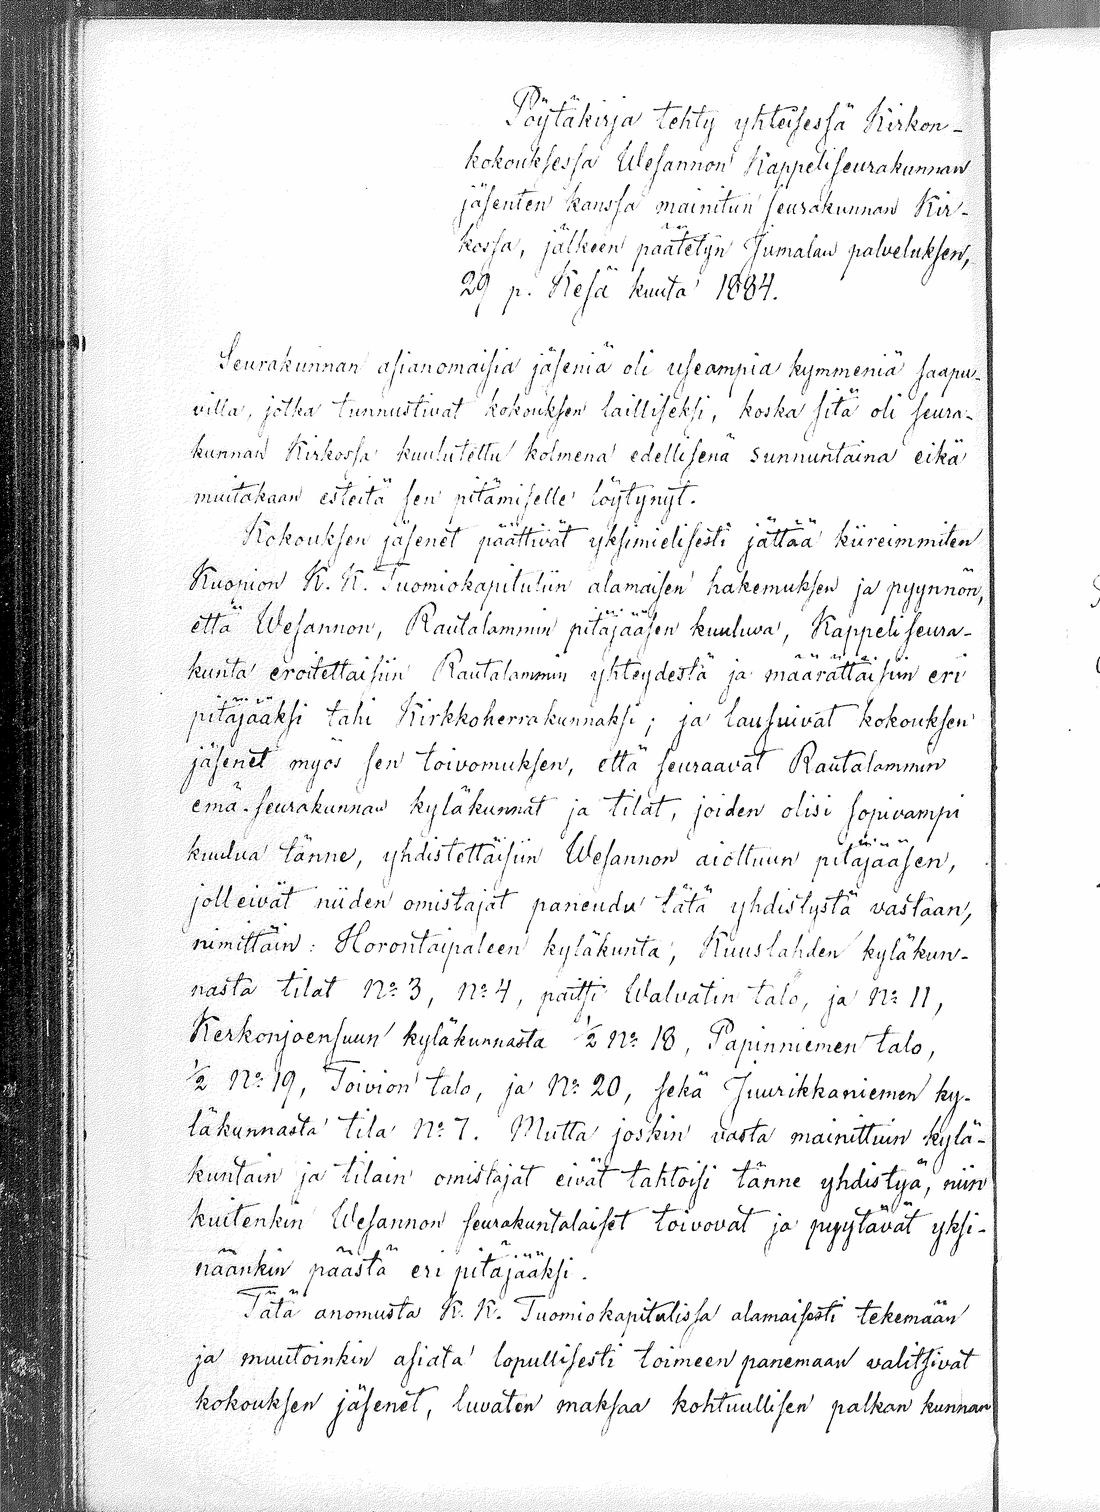 Pöytäkirja tehty yhteisessä Kirkon-
kokouksessa Wesannon Kappeliseurakunnan
jäsenten kanssa mainitun seurakunnan Kir-
kossa, jälkeen päätetyn Jumalan palveluksen,
29 p. Kesä kuuta 1884.
Seurakunnan asianomaisia jäseniä oli useampia kymmeniä saapu-
villa, jotka tunnustivat kokouksen lailliseksi, koska sitä oli seura-
kunnan Kirkossa kuulutettu kolmena edellisenä sunnuntaina eikä
muitakaan esteitä sen pitämiselle löytynyt.
Kokouksen jäsenet päättivät yksimielisesti jättää kiireimmiten
Kuopion K. K. Tuomiokapituliin alamaisen hakemuksen ja pyynnön,
että Wesannon, Rautalammin pitäjääsen kuuluva, Kappeli seura-
kunta eroitettaisiin Rautalammin yhteydestä ja määrättäisiin eri
pitäjääksi tahi Kirkkoherrakunnaksi; ja lausuivat kokouksen
jäsenet myös sen toivomuksen, että seuraavat Rautalammin
emä-seurakunnan kyläkunnat ja tilat, joiden olisi sopivampi
kuulua tänne, yhdistettäisiin Wesannon aiottuun pitäjääsen,
jolleivät niiden omistajat paneudu tätä yhdistystä vastaan,
nimittäin: Horontaipaleen kyläkunta, Kuuslahden kyläkun-
nasta tilat No 3, No 4, paitsi Walvatin talo, ja No 11,
Kerkonjoensuun kyläkunnasta 1/2 No 18, Papinniemen talo,
1/2 No 19, Toivion talo, ja No 20, sekä Juurikkaniemen ky-
läkunnasta tila No 7. Mutta joskin vasta mainittuin kylä-
kuntain ja tilain omistajat eivät tahtoisi tänne yhdistyä, niin
kuitenkin Wesannon seurakuntalaiset toivovat ja pyytävät yksi-
näänkin päästä eri pitäjääksi.
Tätä anomusta K. K. Tuomiokapitulissa alamaisesti tekemään
ja muutoinkin asiata lopullisesti toimeen panemaan valitsivat
kokouksen jäsenet, luvaten maksaa kohtuullisen palkan kunnan